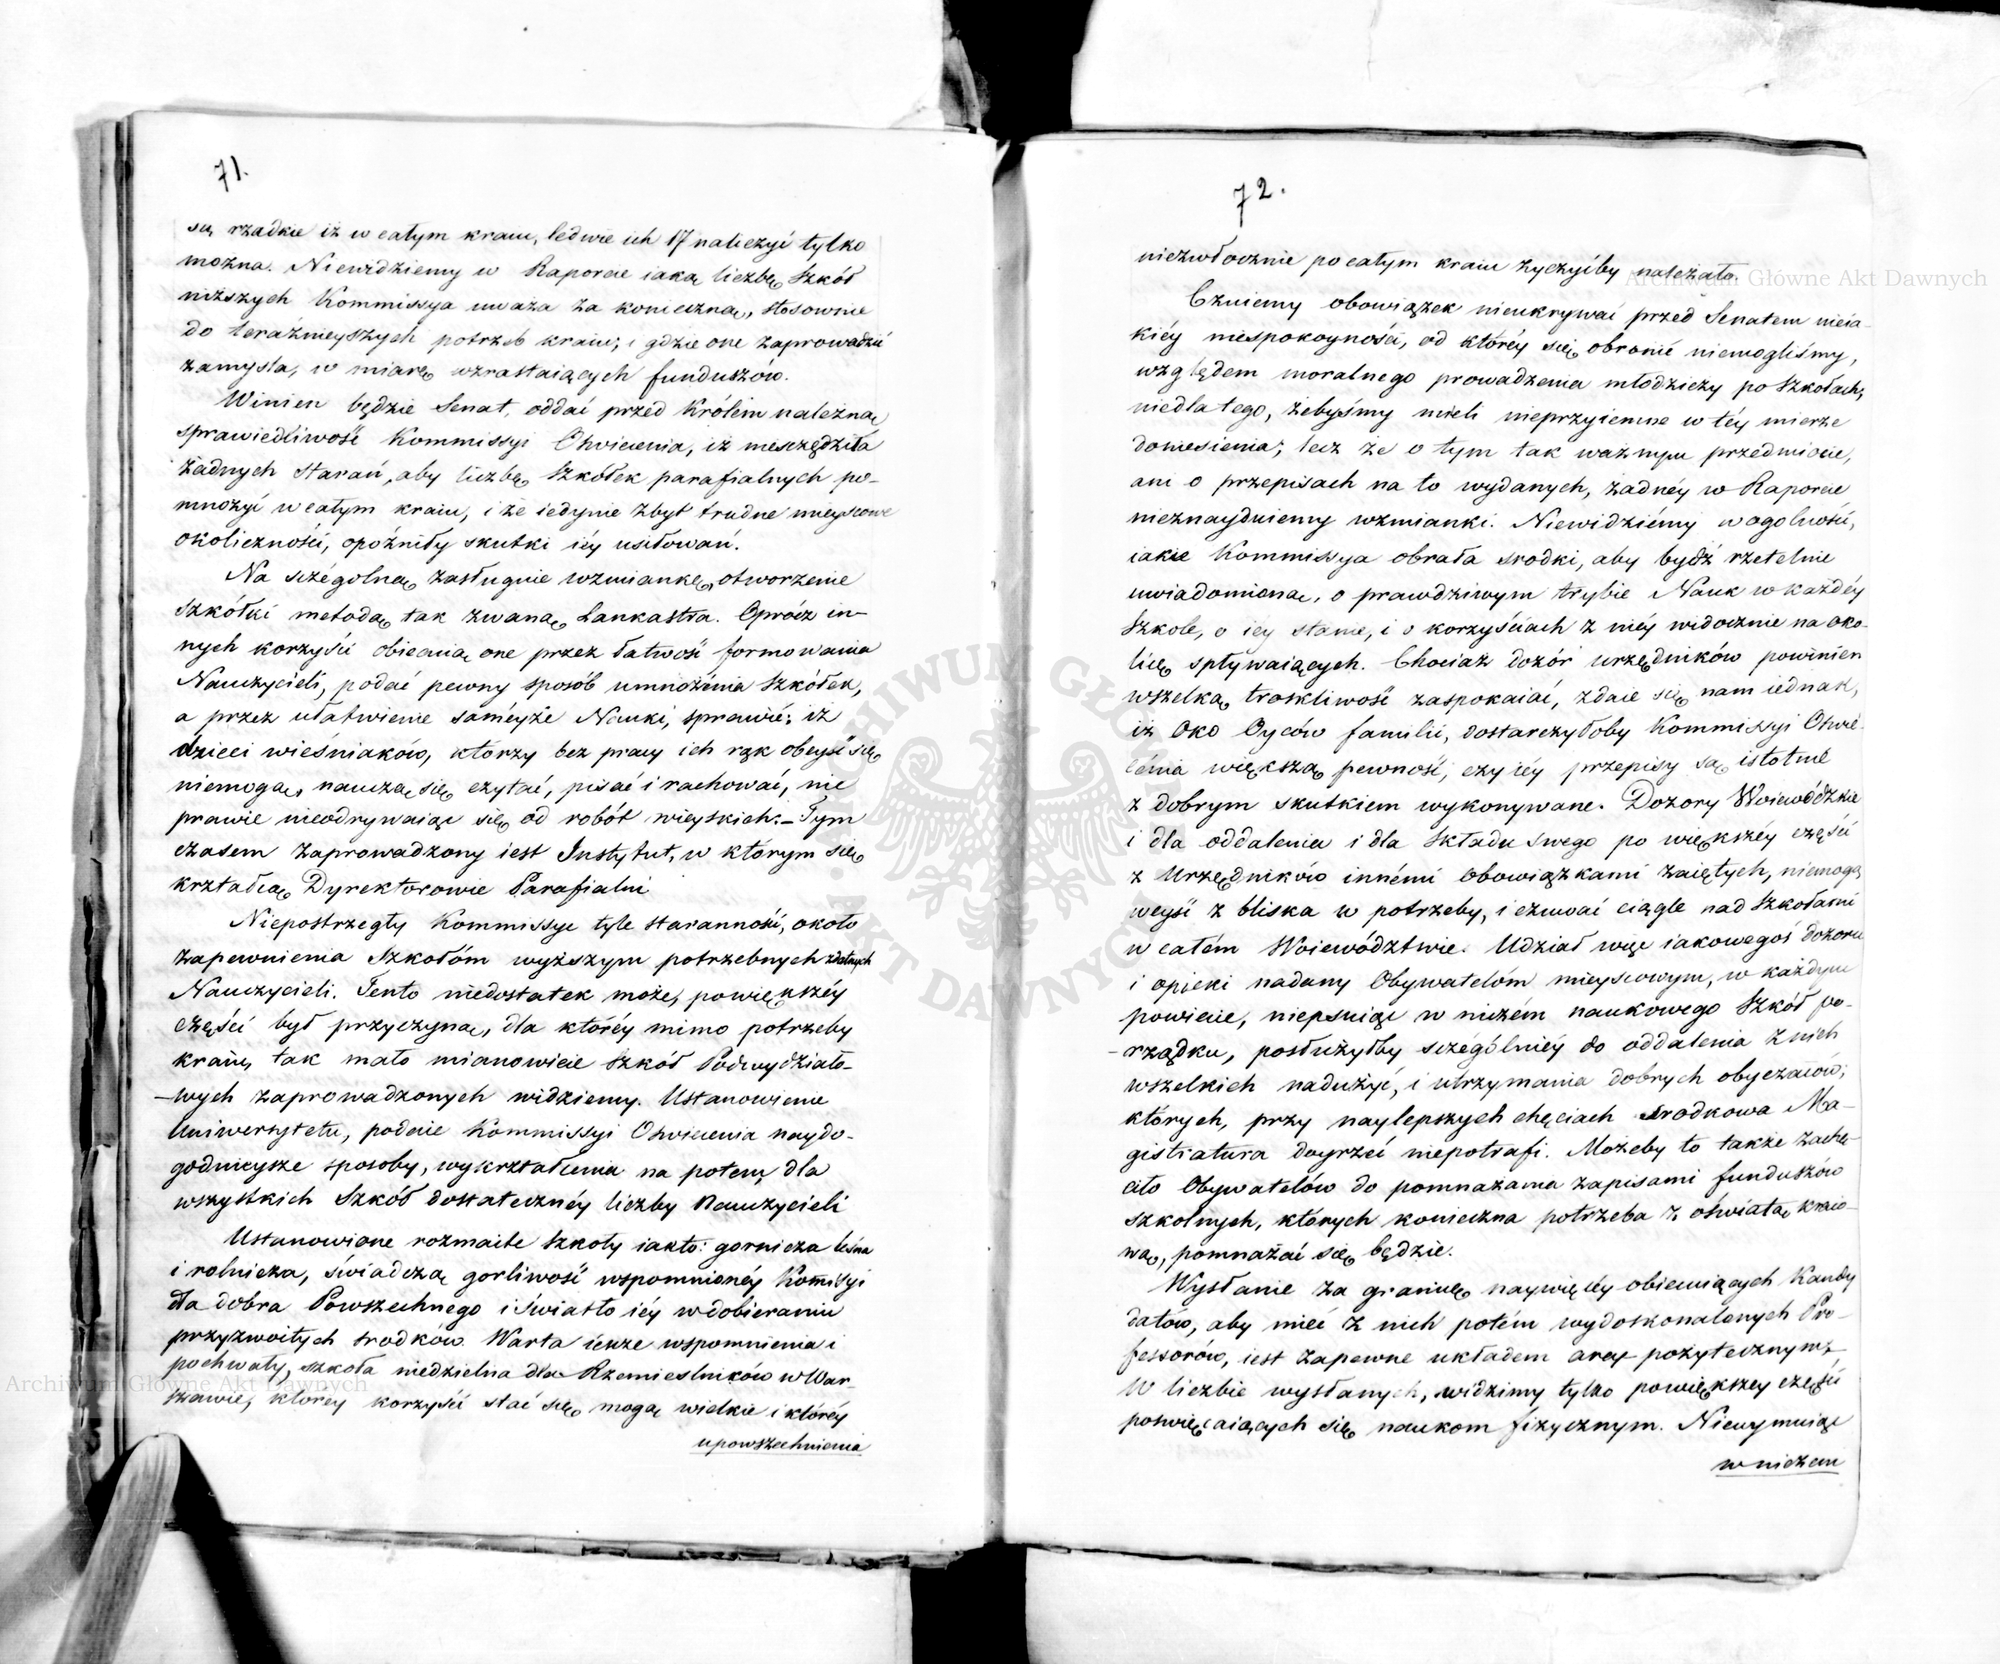 71.
są rzadkie iż w całym kraiu, ledwie ich 17 naliczyć tylko
można. Niewidziemy w Raporcie iaką liczbę Szkół
niższych Kommissya uważa za konieczną, stosownie
do teraźnieyszych potrzeb kraiu; i gdzie one zaprowadzić
zamyśla, w miarę wzrastaiących funduszów.
Winien będzie Senat, oddać przed Królem należną
sprawiedliwość Kommissyi Oświecenia, iż nieszczędziła
żadnych starań, aby liczbę Szkółek parafialnych po-
mnożyć w całym kraiu, i że iedynie zbyt trudne mieyscowe
okoliczności, opóźniły skutki iéy usiłowań.
Na szczególną zasługuie wzmiankę, otworzenie
Szkółki metodą tak zwaną Lankastra. Oprócz in-
nych korzyści obiecuią one przez łatwość formowania
Nauczycieli, podać pewny sposób umnożénia Szkółek,
a przez ułatwienie saméyże Nauki, sprawić; iż
dzieci wieśniaków, którzy bez pracy ich rąk obeyść się
niemogą, nauczą się czytać, pisać i rachować, nie
prawie nieodrywaiąc się od robót wieyskich. – Tym
czasem zaprowadzony iest Instytut, w którym się
krztałcą Dyrektorowie Parafialni
Niepostrzegły Kommissye tyle staranności, około
zapewnienia Szkołóm wyższym potrzebnych zdatnych
Nauczycieli. Tento niedostatek może, powiększéy
części był przyczyną, dla któréy mimo potrzeby
kraiu, tak mało mianowicie Szkół Podwydziało-
-wych zaprowadzonych widziemy. Ustanowienie
Uniwersytetu, podaie Kommissyi Oświecenia naydo-
godnieysze sposoby, wykrztałcenia na potem, dla
wszystkich Szkół dostatecznéy liczby Nauczycieli
Ustanowione rozmaite Szkoły iakto: gornicza leśna
i rolnicza, świadczą gorliwość wspomnionéy Komisyi
dla dobra Powszechnego i światło iéy w dobieraniu
przyzwoitych srodków. Warta ieszcze wspomnienia i
pochwały, szkoła niedzielna dla Rzemieslników w War-
szawie, którey korzyści stać się mogą wielkie i któréy
upowszechnienia
72.
niezwłocznie po całym kraiu życzyćby należało.
Czuiemy obowiązek nieukrywać przed Senatem nieia-
kiéy niespokoyności, od któréy się obronić niemogliśmy,
względem moralnego prowadzenia młodzieży po Szkołach;
niedlatego, żebyśmy mieli nieprzyiemne w téy mierze
doniesienia; lecz że o tym tak ważnym przedmiocie,
ani o przepisach na to wydanych, żadnéy w Raporcie
nieznayduiemy wzmianki. Niewidziémy w ogolności,
iakie Kommissya obrała srodki, aby bydź rzetelnie
uwiadomioną, o prawdziwym trybie Nauk w każdéy
Szkole, o iéy stanie, i o korzyściach z niéy widocznie na oko-
licę spływaiących. Chociaż dozór urzędników powinien
wszelką troskliwość zaspokaiać, zdaie się nam iednak,
iż oko Oyców familii, dostarczyłoby Kommissyi Oświe-
cénia większą pewność, czy iéy przepisy są istotnie
z dobrym skutkiem wykonywane. Dozory Woiewódzkie
i dla oddalenia i dla składu swego po większéy części
z Urzędników innémi obowiązkami zaiętych, niemogą
weyść z bliska w potrzeby, i czuwać ciągle nad Szkołami
w całém Woiewództwie. Udział więc iakowegoś dozoru
i opieki nadany Obywatelóm mieyscowym, w każdym
powiecie, niepsuiąc w niczém naukowego Szkół po-
-rządku, posłużyłby szczególniéy do oddalenia z nich
wszelkich nadużyć, i utrzymania dobrych obyczaiów;
których, przy naylepszych chęciach środkowa Ma-
gistratura doyrzeć niepotrafi. Możeby to także zachę-
ciło Obywatelów do pomnażania zapisami funduszów
szkolnych, których konieczna potrzeba z oświatą kraio-
wą, pomnażać się będzie.
Wysłanie za granicę naywięcéy obiecuiących Kandy
datów, aby mieć z nich potém wydoskonalonych Pro-
fessorów, iest zapewne układem arcy pożytecznym,
W liczbie wysłanych, widzimy tylko powiększey części
poswięcaiących się naukom fizycznym. Niewymuiąc
w niczem
Archiwum Główne Akt Dawnych
Archiwum Główne Akt Dawnych
ARCHIWUM GŁÓWNE AKT DAWNYCH